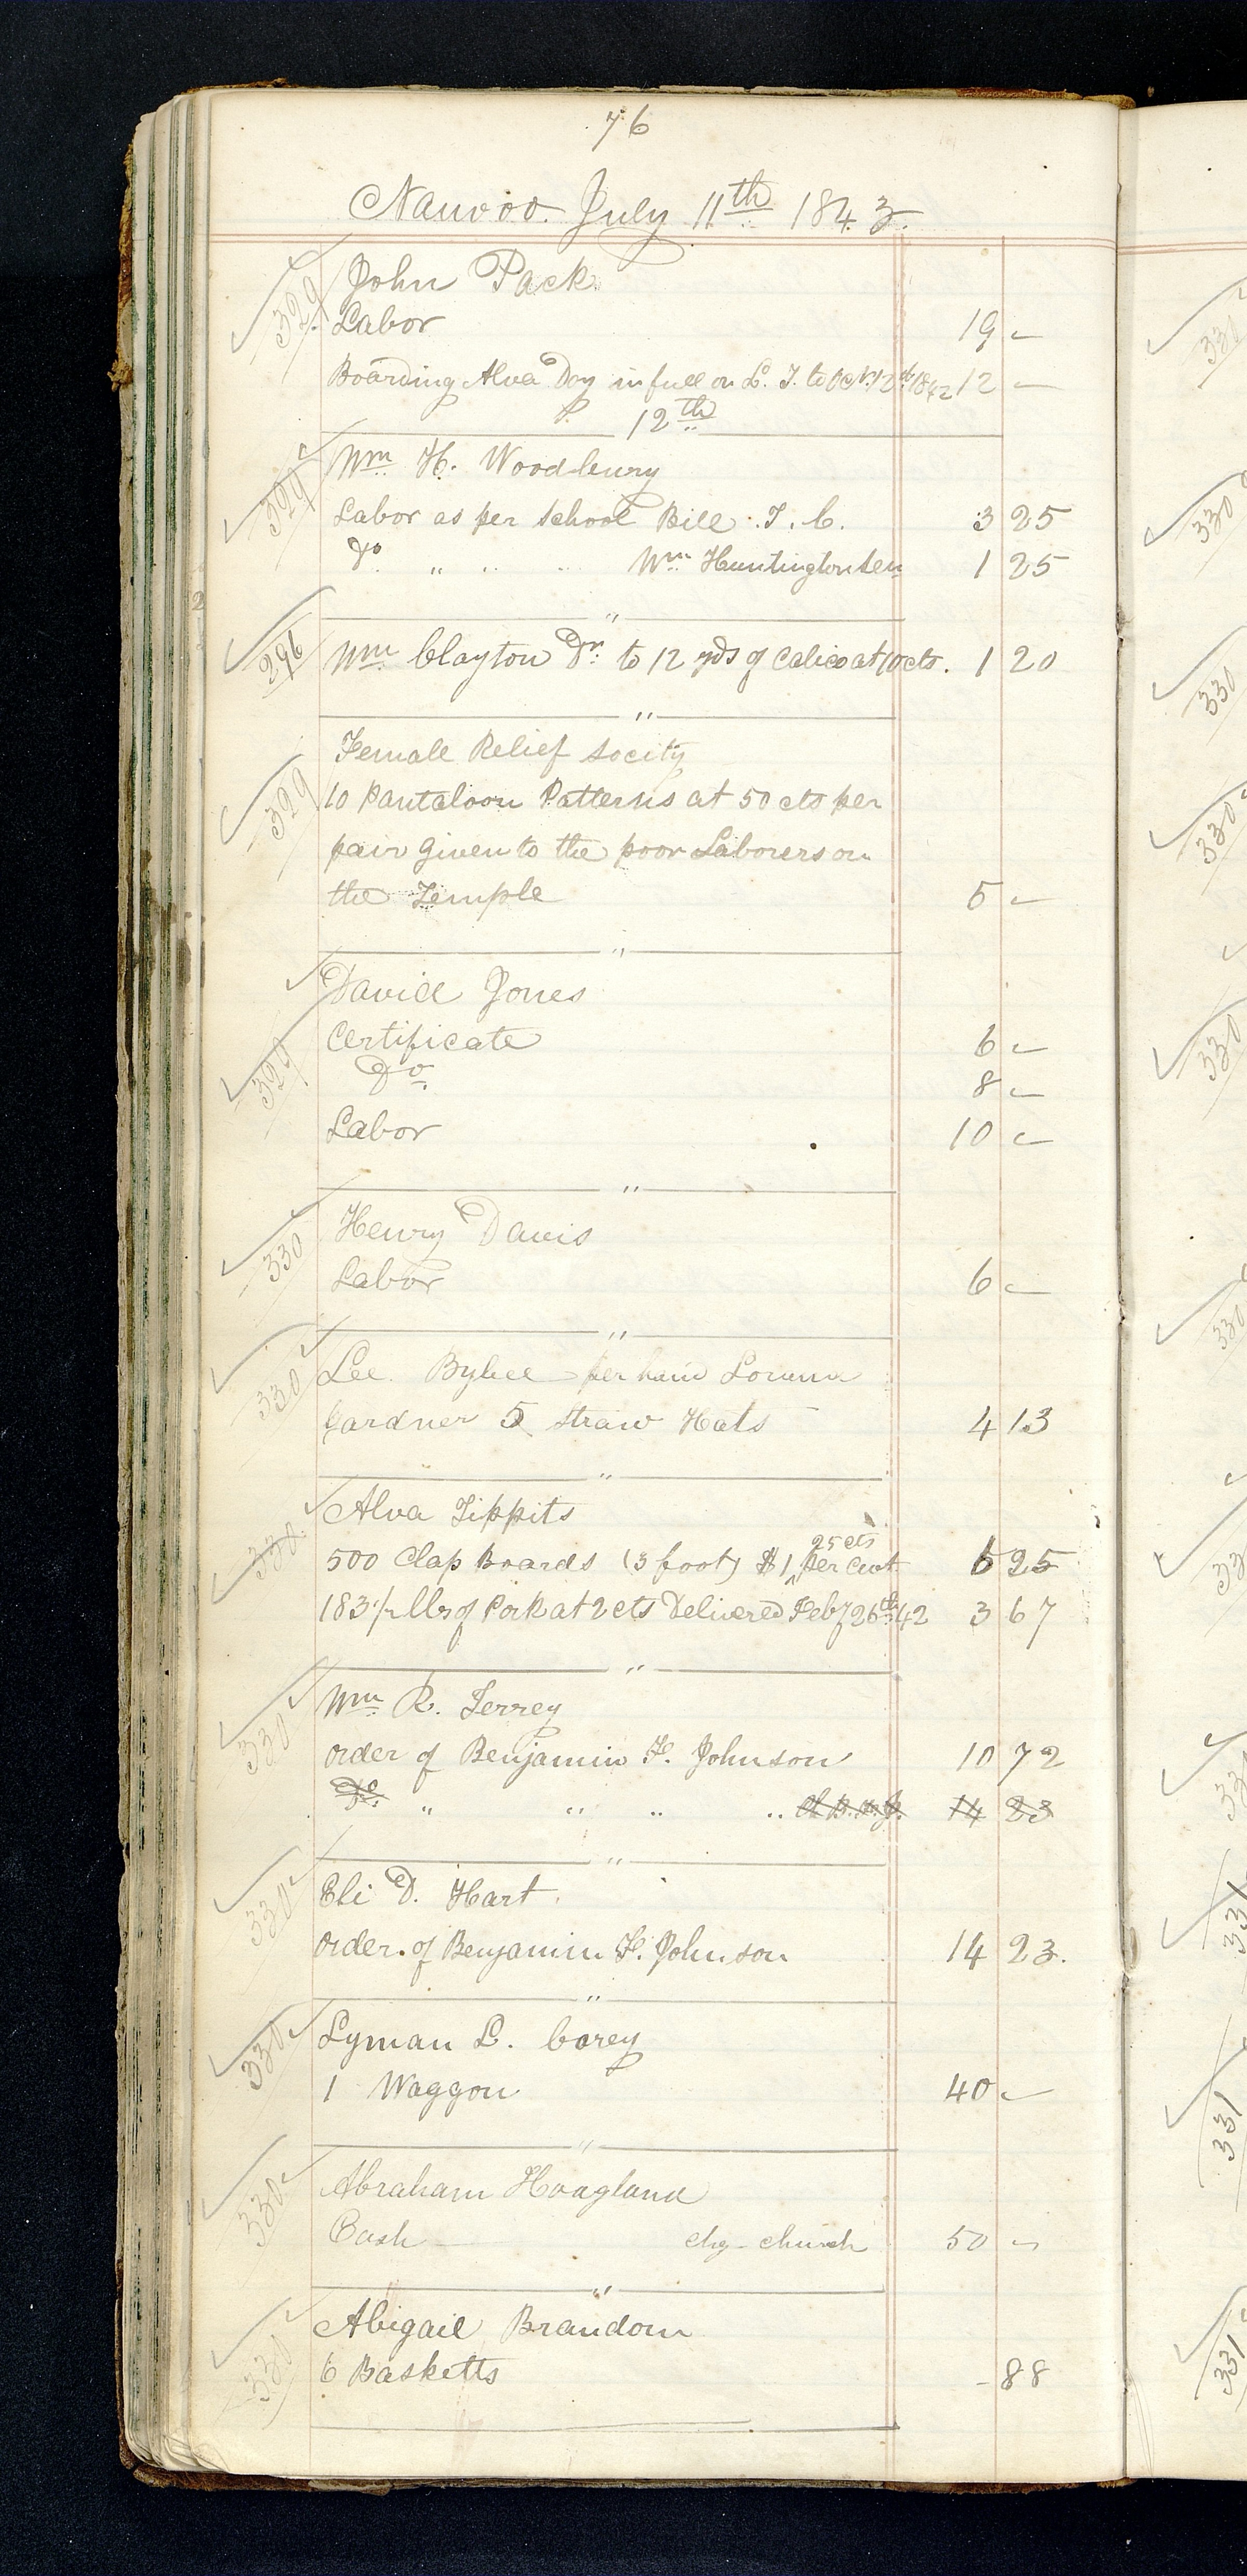 76
Nauvoo July 11th 1843.
329 John Pack
Labor 19 —
Boarding Alva Day in full on L. T. to Oct. 12th 1842 12 —
12th
329 Wm H. Woodbury
Labor as per School Bill T. C. 3 25
Do " " " Wm Huntington Sen 1 25
"
296 Wm Clayton Dr. to 12 yds of Calico at 10 cts. 1 20
"
Female Relief Socity
329 10 Pantaloon Patterns at 50 cts per
pair given to the poor Laborers on
the Temple 5 —
"
David Jones
Certificate 6 —
329 Do 8 —
Labor 10 —
"
Henry Davis
330 Labor 6 —
"
330 Lee Bybee per hand
Gardner 5 Straw Hats 4 13
"
Alva Tippits
25 cts
330 500 Clap Boards (3 foot) $1 ^ per Cwt. 6 25
183 1/2 lbs of Pork at 2 cts Delivered Feby 26th 42 3 67
"
Wm R. Terrey
330 order of Benjamin F. Johnson 10 72
Do " " " " 14 23
"
Eli D. Hart
330 order of Benjamin F. Johnson 14 23.
"
330 Lyman L. Corey
1 Waggon 40 —
"
330 Abraham Hoagland
Cash chg church 50 —
"
Abigail Brandom
330 6 Basketts - 88
330
330
330
330
330
330
331
331
331